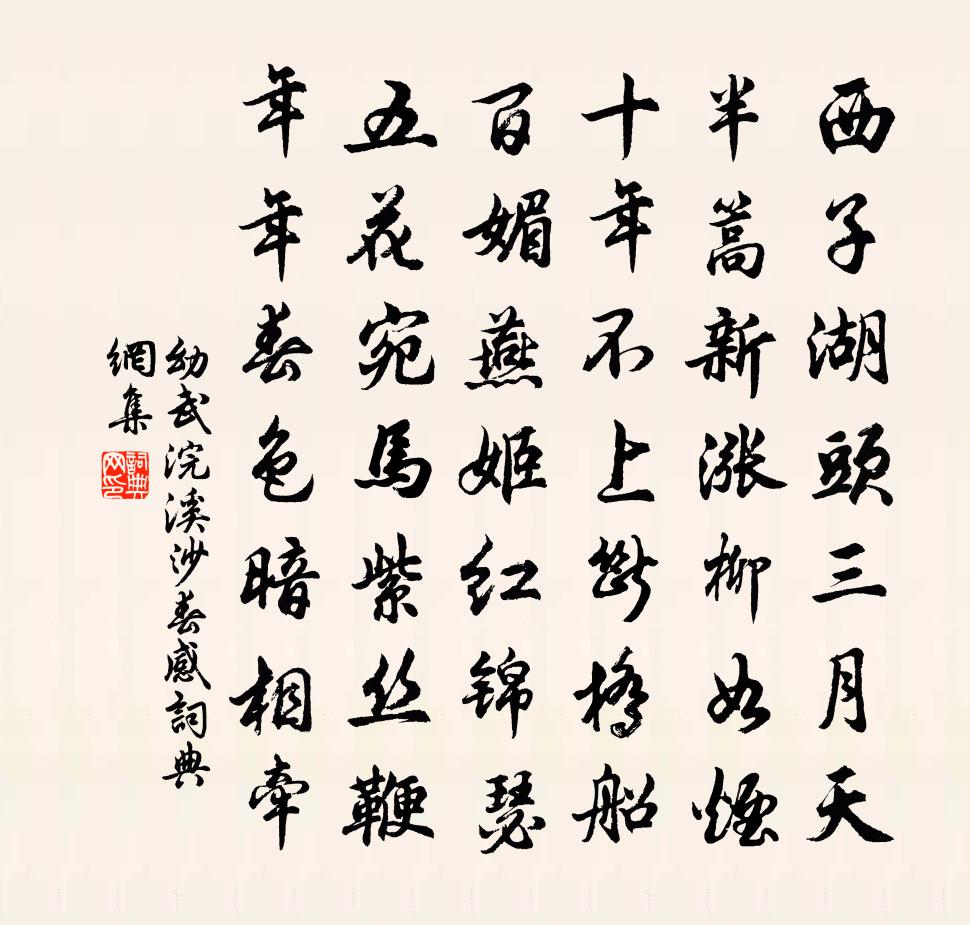 西子湖頭三月天
半篙新漲柳如煙
十年不上斷橋船
百媚燕姬红锦瑟
五花宛馬紫丝鞭
年年春色暗相牽
幼武浣溪沙春感詞典
網集
詞典网印